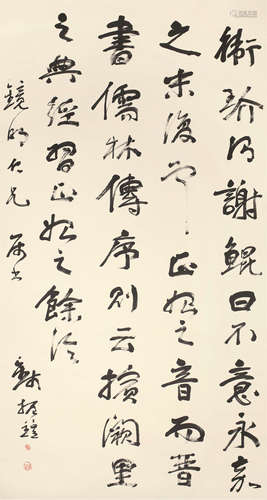 衛玠謝鯤曰不意永嘉
之末復聞正始之音而晉
書儒林傳序則云擯闕里
之典經習正始之餘論
鏡明仁兄 屬書